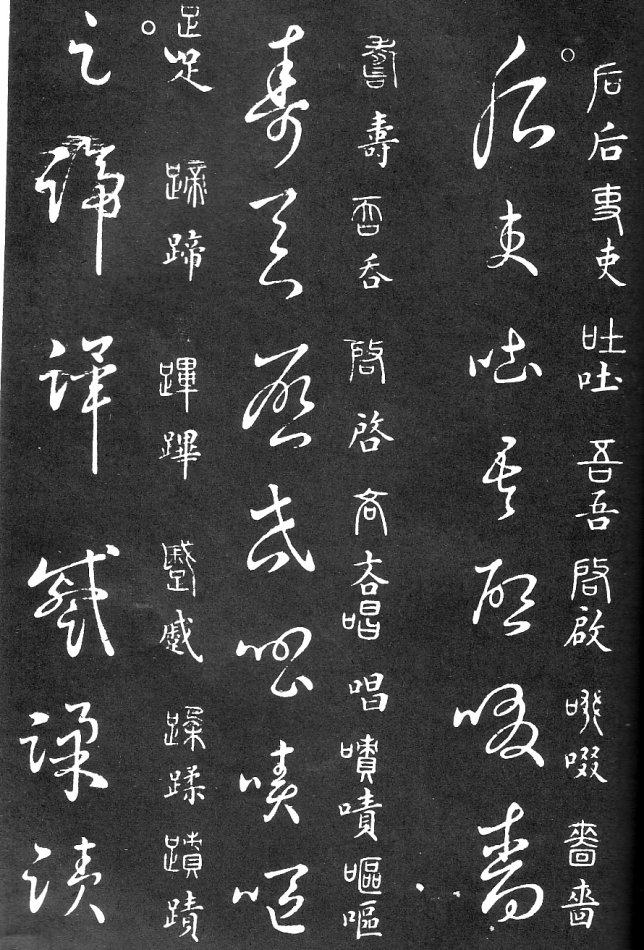 后后吏吏吐吐吾吾啓啟啜啜嗇嗇
○后吏吐吾啟啜嗇
壽壽吞吞啓啓吝吝唱唱嘖嘖嘔嘔
壽吞啓吝唱嘖嘔
足足蹄蹄蹕蹕蹙蹙蹂蹂蹟蹟
○足蹄蹕蹙蹂蹟